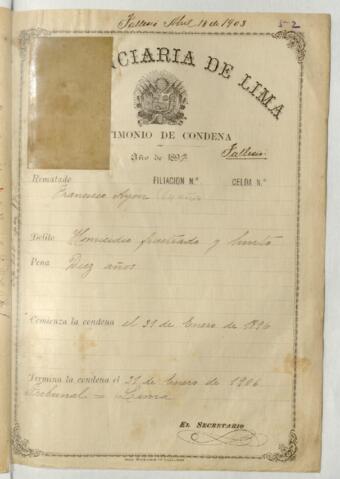 Falleció Abril 18 de 1903
CIARIA DE LIMA
TIMONIO DE CONDENA
Año de 1897
Falleció
Rematado FILIACION N.º CELDA N.º
Francisco Ayon
Delito Homicidio frustrado y hurto
Pena Diez años
Comienza la condena el 31 de Enero de 1896
Termina la condena el 31 de Enero de 1906
Tribunal = Lima
EL SECRETARIO